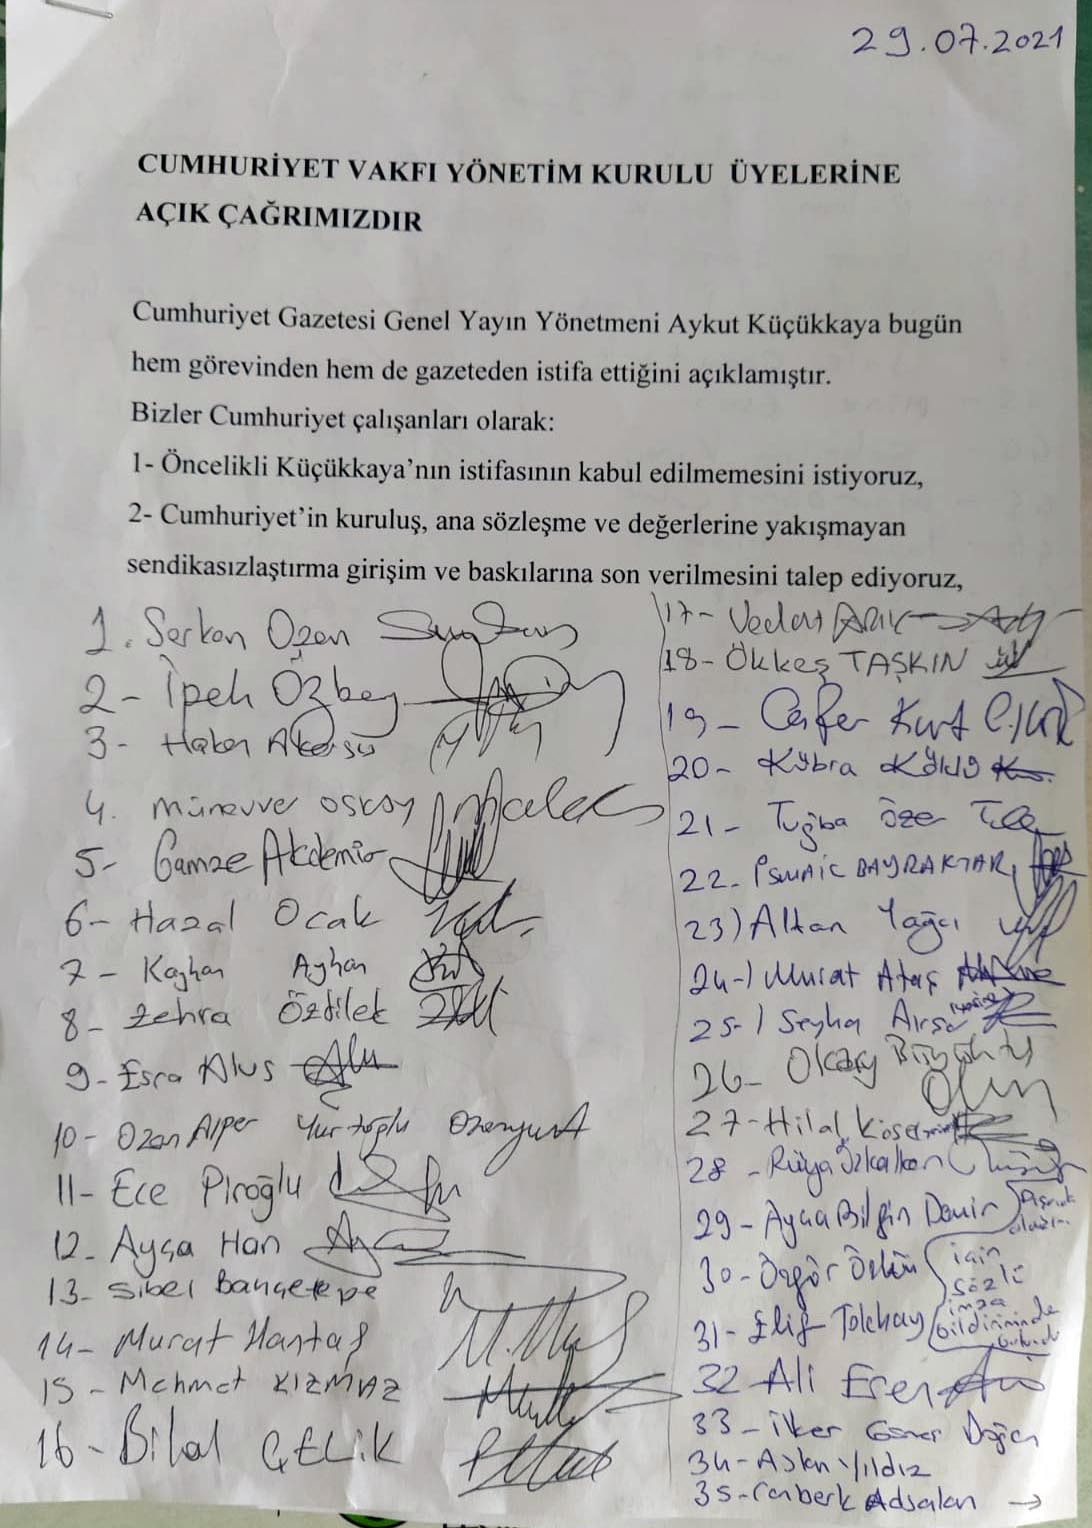 29.07.2021
CUMHURİYET VAKFI YÖNETİM KURULU ÜYELERİNE
AÇIK ÇAĞRIMIZDIR
Cumhuriyet Gazetesi Genel Yayın Yönetmeni Aykut Küçükkaya bugün
hem görevinden hem de gazeteden istifa ettiğini açıklamıştır.
Bizler Cumhuriyet çalışanları olarak:
1- Öncelikli Küçükkaya'nın istifasının kabul edilmemesini istiyoruz,
2- Cumhuriyet'in kuruluş, ana sözleşme ve değerlerine yakışmayan
sendikasızlaştırma girişim ve baskılarına son verilmesini talep ediyoruz,
1. Serkan Ozan
2- İpek Özbey
3-
4. münevver oskay
5- Gamze Akdemir
6- Hazal Ocak
7- Kayhan Ayhan
8- Zehra Özdilek
9- Esra Alus
10- Ozan Alper Yurtoğlu
11- Ece Piroğlu
12- Ayça Han
13- Sibel Bahçetepe
14- Murat Hantaş
15- Mehmet KIZMAZ
16- Bilal ÇELİK
17- Vedat Arık
18- Ökkeş TAŞKIN
19- Cafer Kurt
20- Kübra
21- Tuğba Özer
22- İsmail BAYRAKTAR
23) Altan Yağcı
24-) Murat Ataş
25-) Seyhan
26- Olcay
27- Hilal Köse
28- Rüya
29- Ayça Bilgin Demir
30- Özgür
31- Elif Tokbay
için
sözlü
imza
bildiriminde
32 Ali Eren
33- İlker
34- Aslan Yıldız
35- Canberk Adsalan →